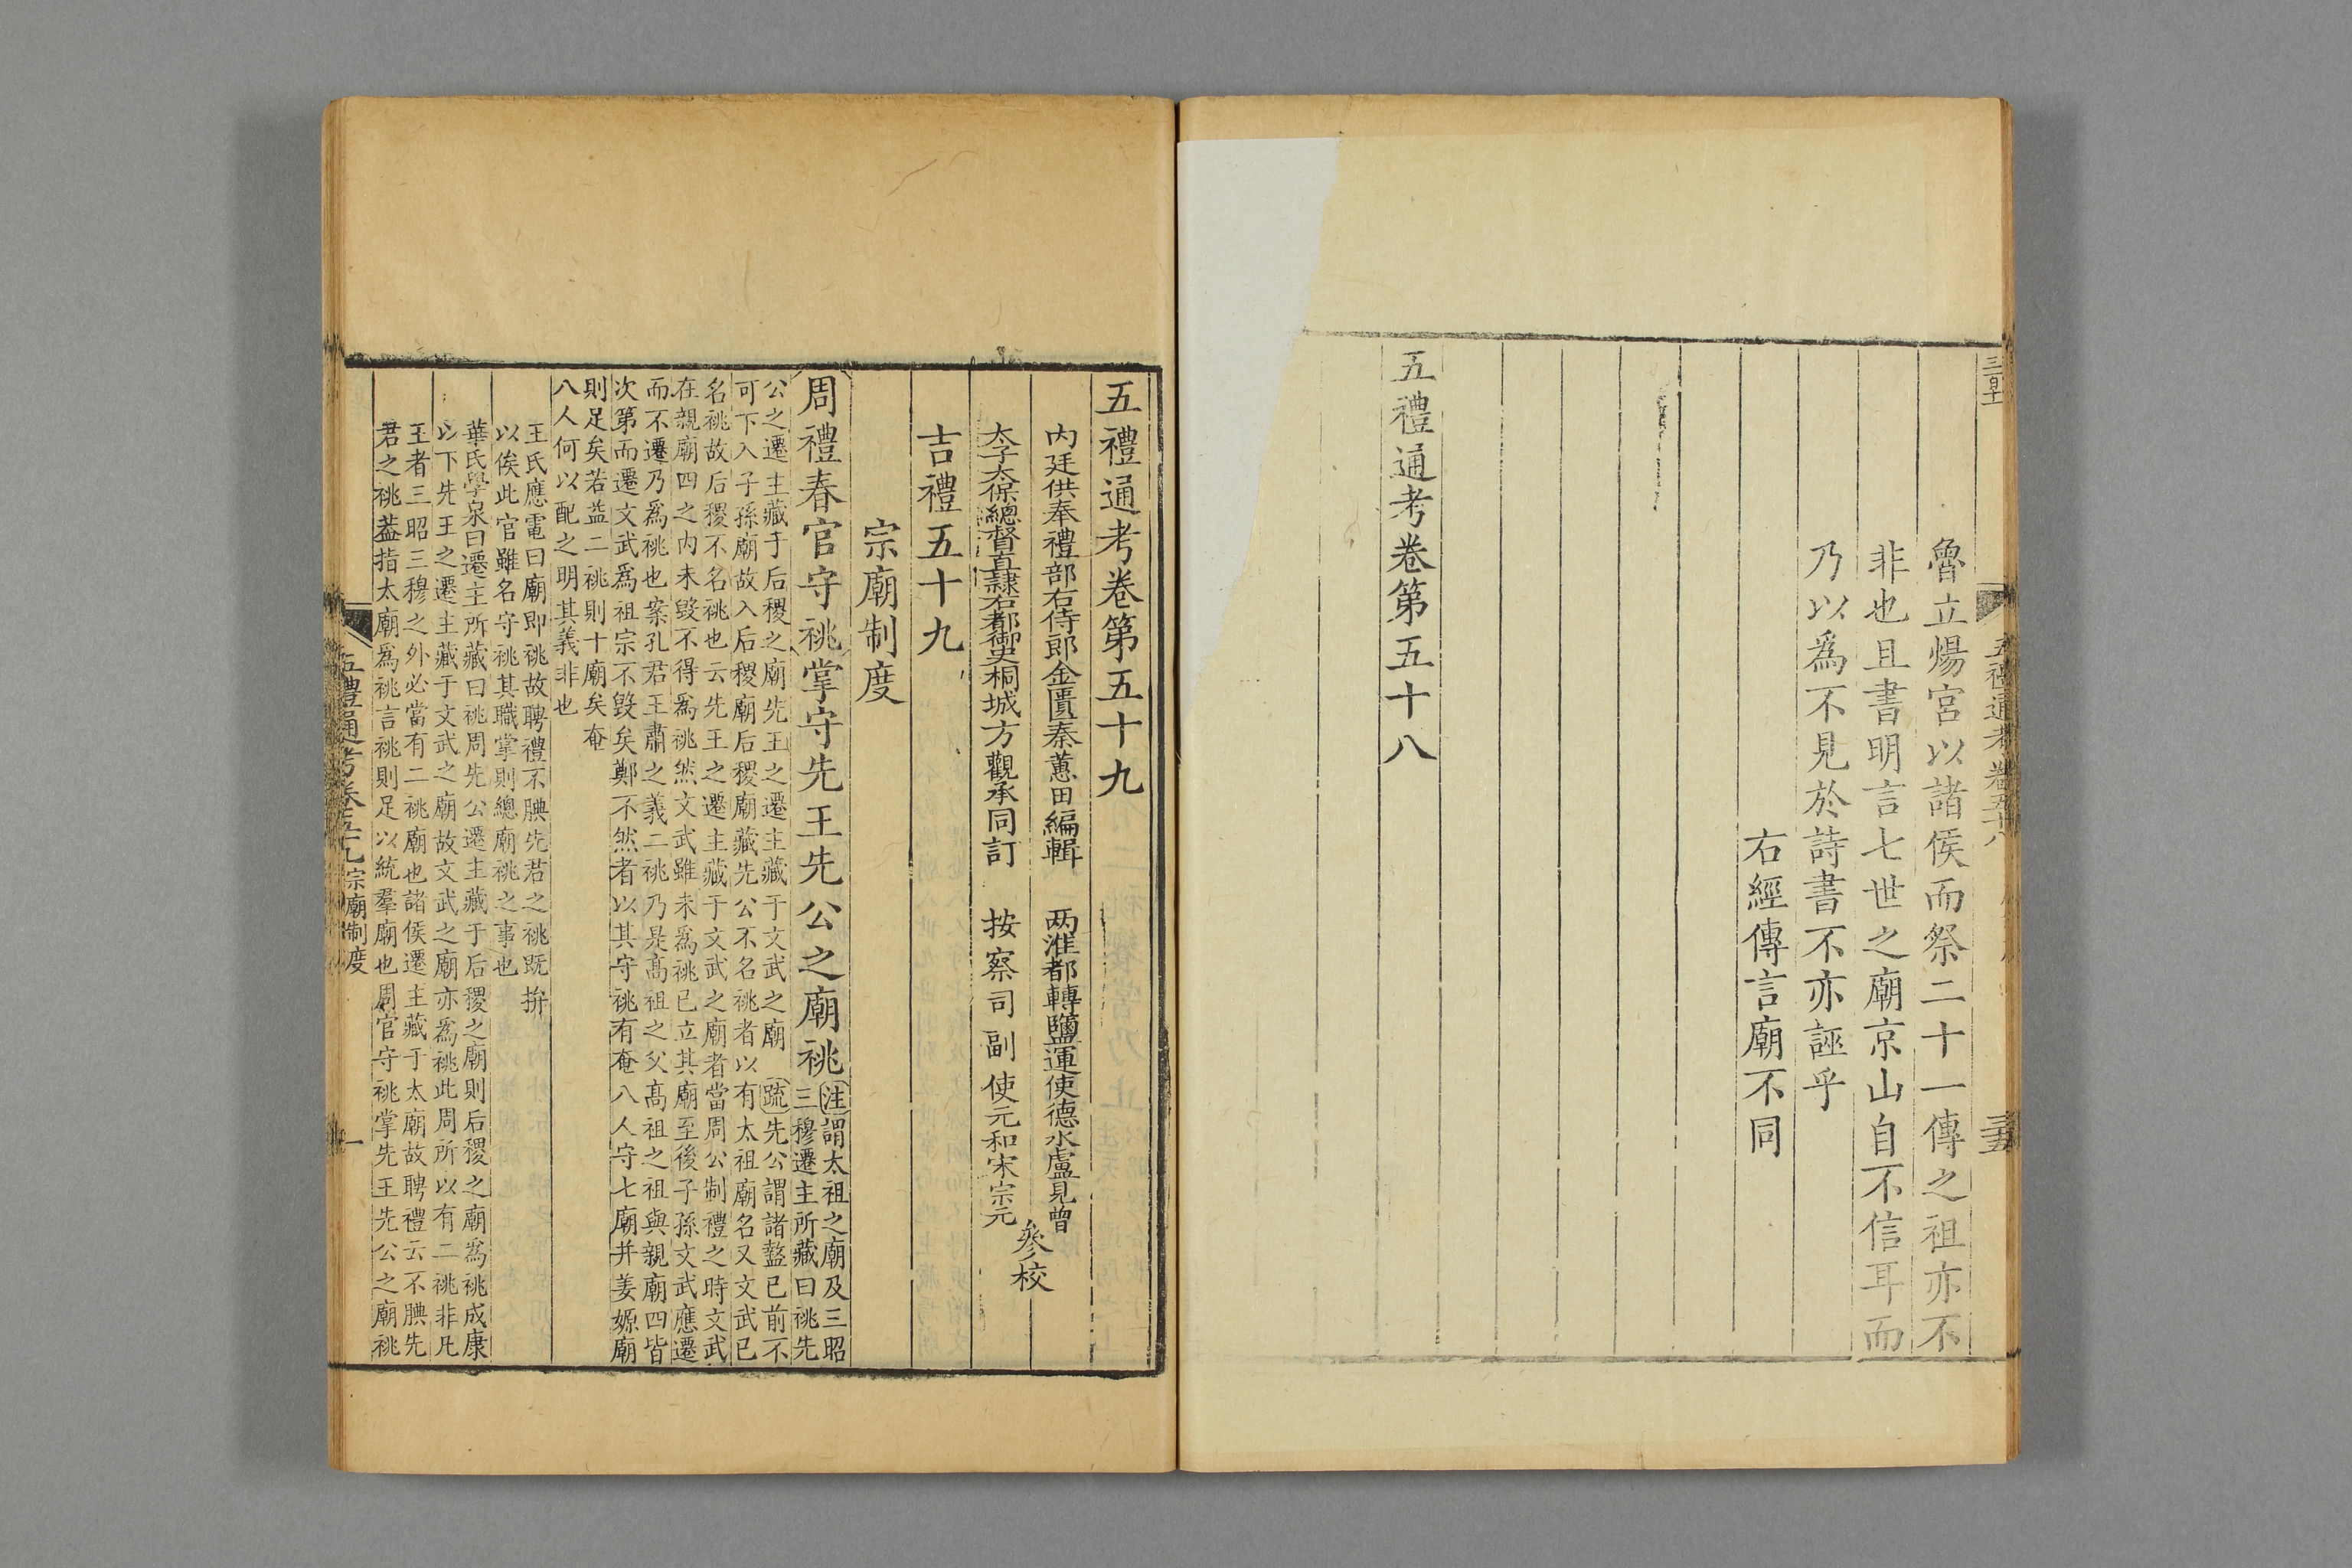 魯立煬宮以諸侯而祭二十一傳之祖亦不
非也且書明言七世之廟京山自不信耳而
乃以爲不見於詩書不亦誣乎
右經傳言廟不同
五禮通考卷第五十八
五禮通考卷五十八
三五
五禮通考卷第五十九
內廷供奉禮部右侍郎金匱秦蕙田編輯
兩淮都轉鹽運使德水盧見曾
太子太保總督直隸右都御史桐城方觀承同訂
按察司副使元和宋宗元
參校
吉禮五十九
宗廟制度
周禮春官守祧掌守先王先公之廟祧
注謂太祖之廟及三昭
三穆遷主所藏曰祧先
公之遷主藏于后稷之廟先王之遷主藏于文武之廟 疏先公謂諸盩已前不
可下入子孫廟故入后稷廟后稷廟藏先公不名祧者以有太祖廟名又文武已
名祧故后稷不名祧也云先王之遷主藏于文武之廟者當周公制禮之時文武
在親廟四之內未毀不得爲祧然文武雖未爲祧已立其廟至後子孫文武應遷
而不遷乃爲祧也案孔君王肅之義二祧乃是高祖之父高祖之祖與親廟四皆
次第而遷文武爲祖宗不毀矣鄭不然者以其守祧有奄八人守七廟并姜嫄廟
則足矣若益二祧則十廟矣奄
八人何以配之明其義非也
王氏應電曰廟即祧故聘禮不腆先君之祧旣拚
以俟此官雖名守祧其職掌則總廟祧之事也
華氏學泉曰遷主所藏曰祧周先公遷主藏于后稷之廟則后稷之廟爲祧成康
以下先王之遷主藏于文武之廟故文武之廟亦爲祧此周所以有二祧非凡
王者三昭三穆之外必當有二祧廟也諸侯遷主藏于太廟故聘禮云不腆先
君之祧葢指太廟爲祧言祧則足以統羣廟也周官守祧掌先王先公之廟祧
五禮通考卷五十九 宗廟制度
一